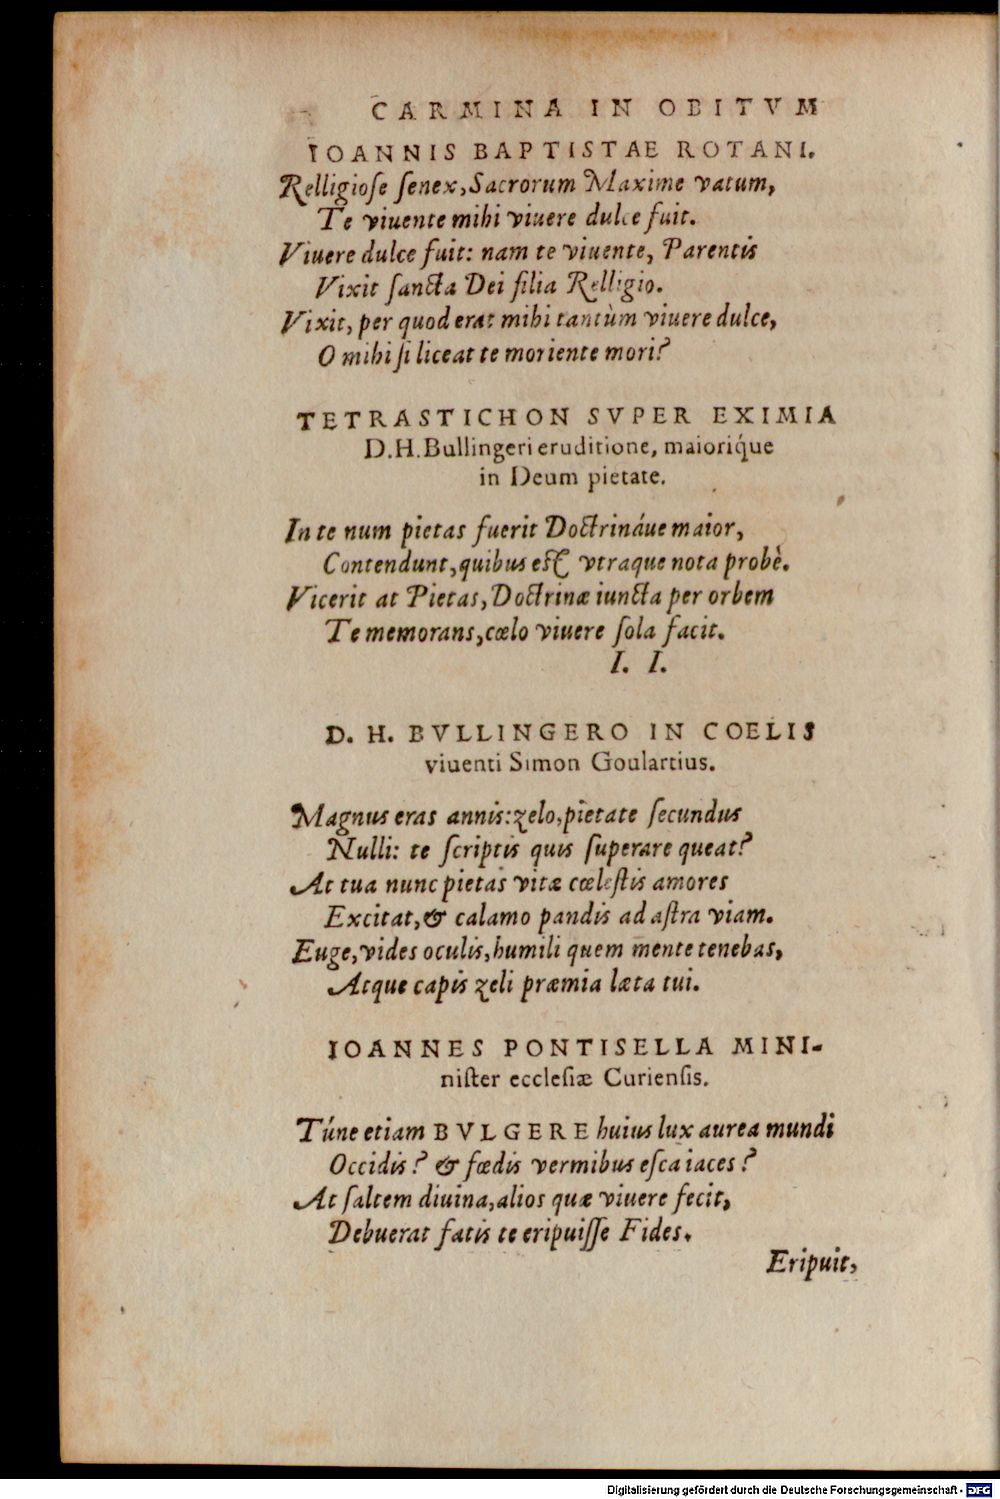 CARMINA IN OBITVM
IOANNIS BAPTISTAE ROTANI.
Relligioſe ſenex, Sacrorum Maxime vatum,
Te viuente mihi viuere dulce fuit.
Viuere dulce fuit: nam te viuente, Parentis
Vixit ſancta Dei filia Relligio.
Vixit, per quod erat mihi tantùm viuere dulce,
O mihi ſi liceat te moriente mori?
TETRASTICHON SVPER EXIMIA
D. H. Bullingeri eruditione, maioriq́ue
in Deum pietate.
In te num pietas fuerit Doctrináue maior,
Contendunt, quibus eſt vtraque nota probè.
Vicerit at Pietas, Doctrinæ iuncta per orbem
Te memorans, cœlo viuere ſola facit.
I. I.
D. H. BVLLINGERO IN COELIS
viuenti Simon Goulartius.
Magnus eras annis: zelo, pietate ſecundus
Nulli: te ſcriptis quis ſuperare queat?
At tua nunc pietas vitæ cœleſtis amores
Excitat, & calamo pandis ad aſtra viam.
Euge, vides oculis, humili quem mente tenebas,
Atque capis zeli præmia læta tui.
IOANNES PONTISELLA MINI-
niſter eccleſiæ Curienſis.
Túne etiam BVLGERE huius lux aurea mundi
Occidis? & fœdis vermibus eſca iaces?
At ſaltem diuina, alios quæ viuere fecit,
Debuerat fatis te eripuiſſe Fides.
Eripuit,
Digitalisierung gefördert durch die Deutsche Forschungsgemeinschaft - DFG